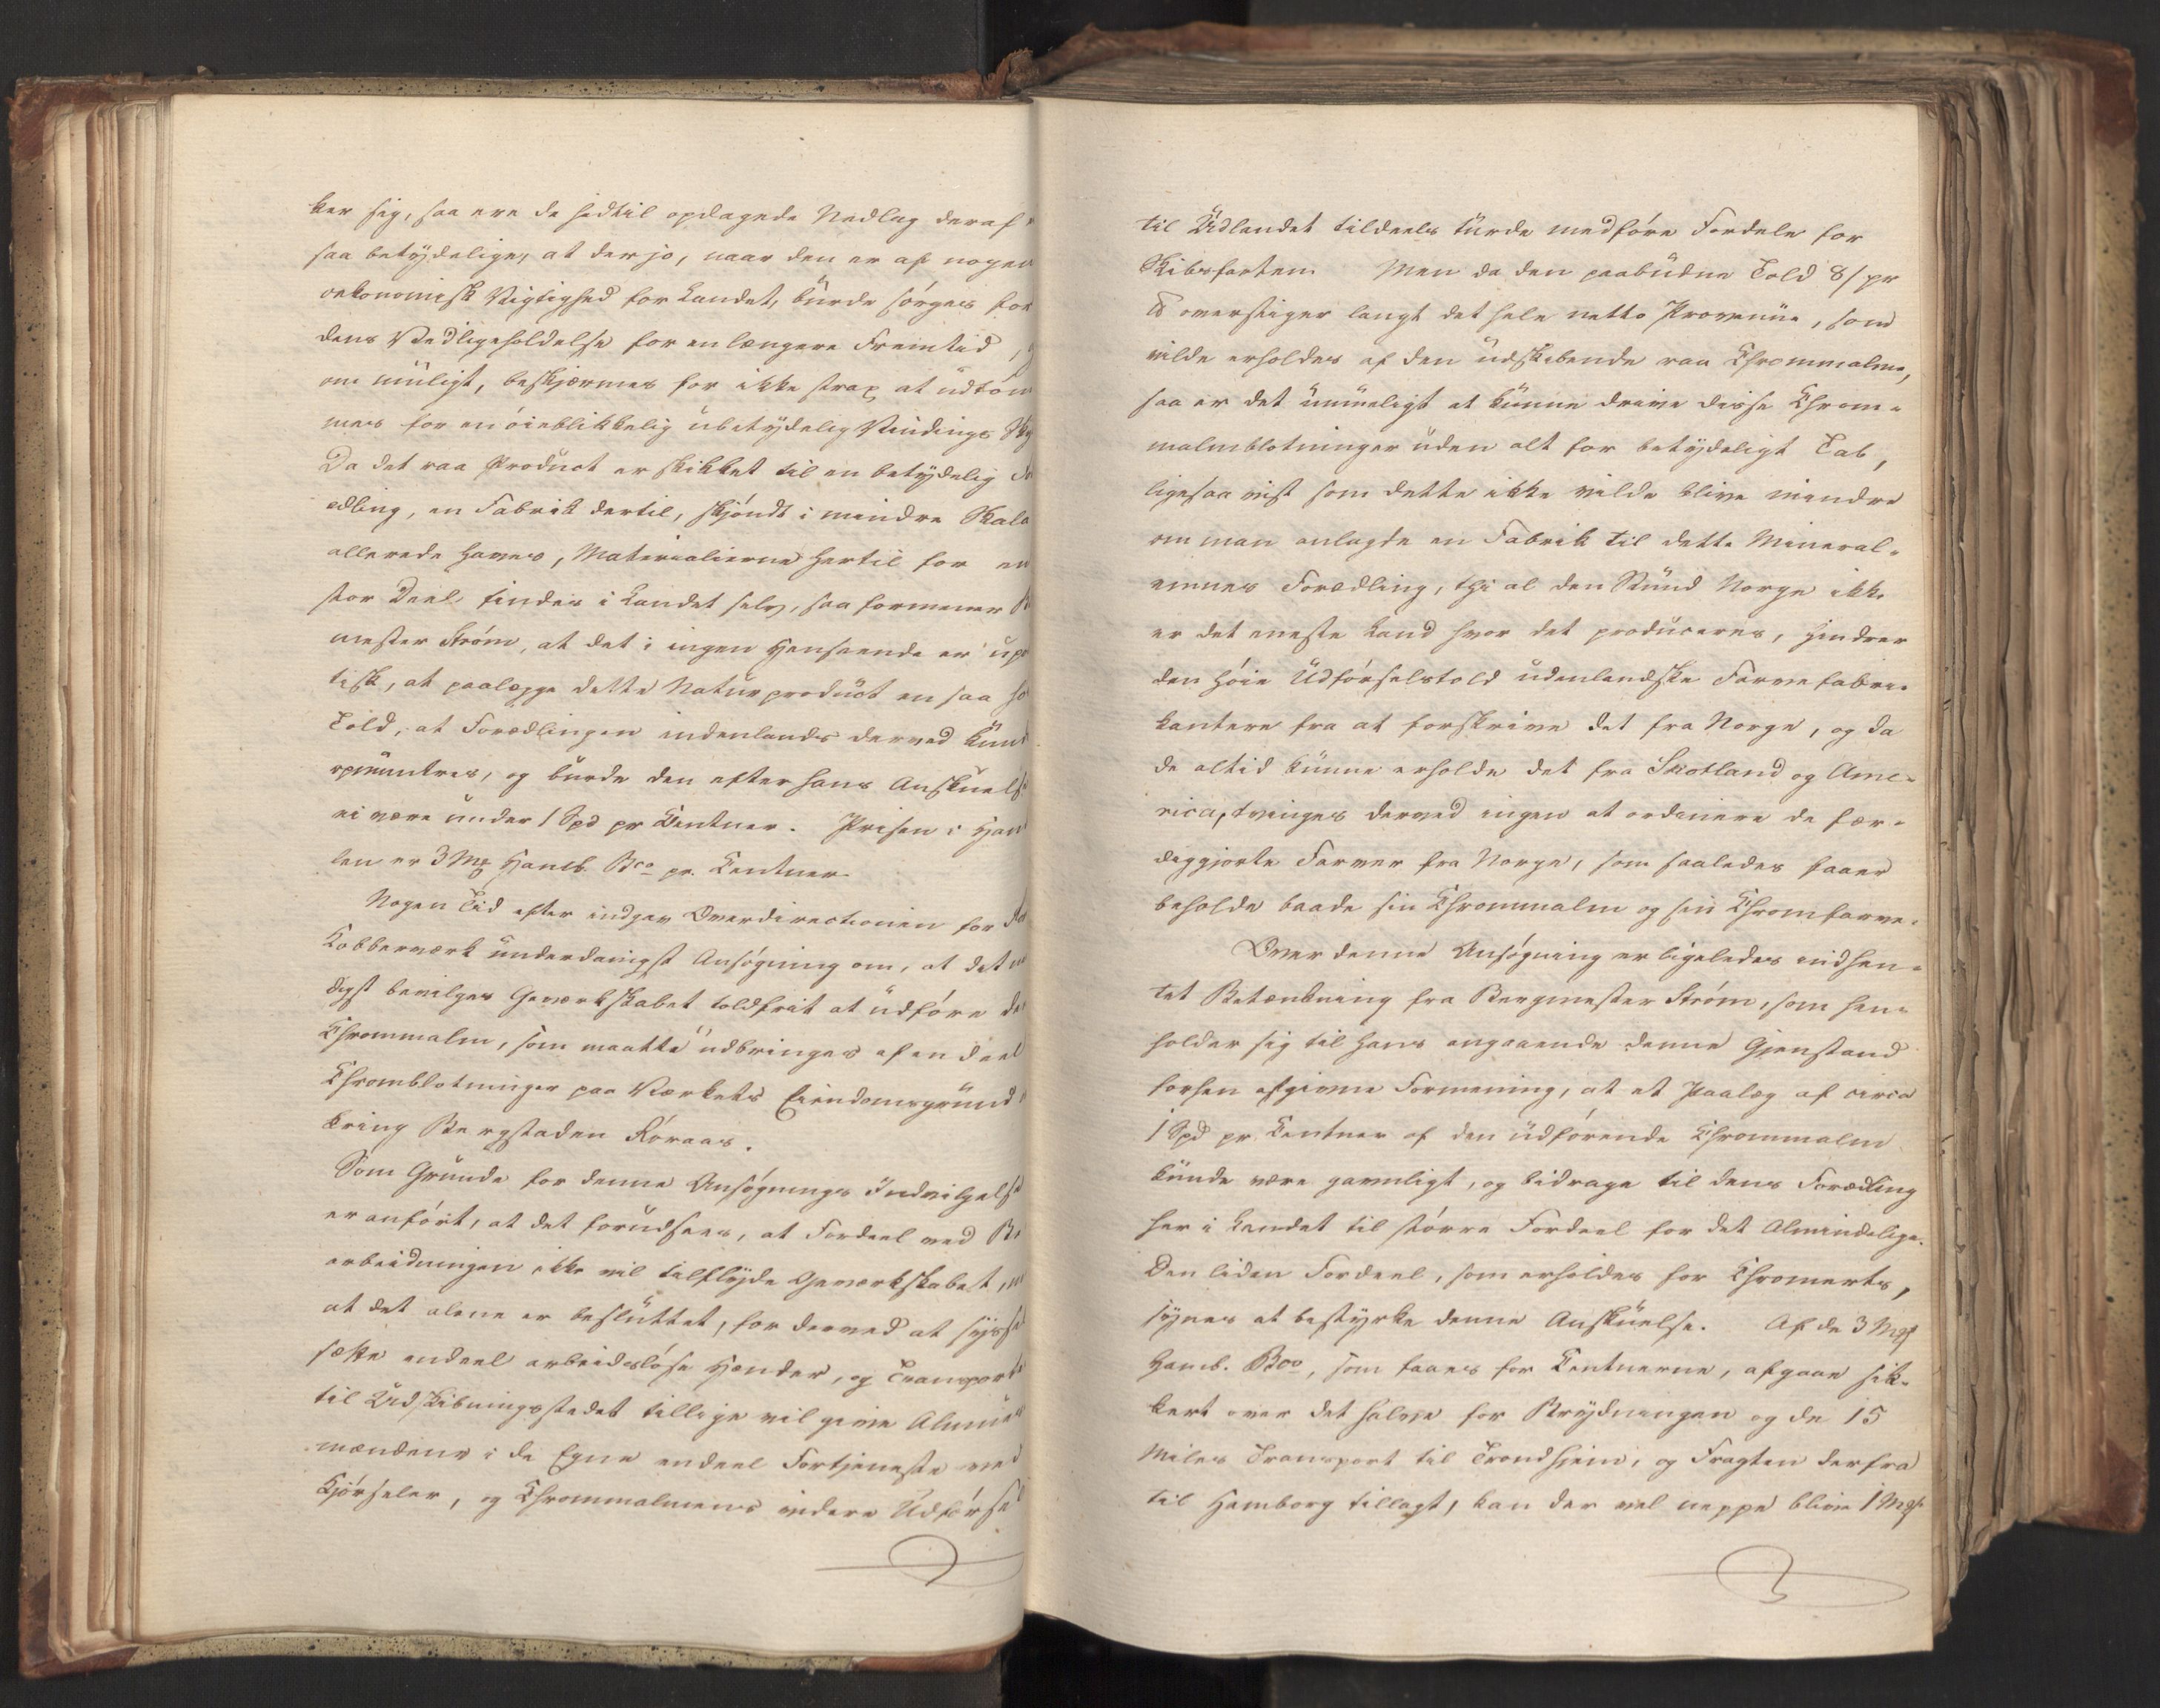 ker sig, saa ere de hidtil opdagede Nedlag deraf
saa betydelige, at der jo, naar den er af nogen
oekonomisk Vigtighed for Landet, burde sørges for
dens Vedligeholdelse for en længere Fremtid,
om muligt, beskjærmes for ikke strax at udtøm
mes for en øieblikkelig ubetydelig Vindings
Da det raa Product er skikket til en betydelig
ædling, en Fabrik dertil, skjøndt i mindre Skala
allerede haves, Materialierne hertil for en
stor Deel findes i Landet selv, saa formener
mester Strøm, at det i ingen Henseende er
tisk, at paalægge dette Naturproduct en saa
Told, at Forædlingen indenlands derved
opmuntres, og burde den efter hans Anskuelse
ei være under 1 Spd pr Centner. Prisen i Han
len er 3 Mk Hamb. Bco pr. Centner
Nogen Tid efter indgav Overdirectionen for
Kobberværk underdanigst Ansøgning om, at det
digst bevilges Gewerkskabet toldfrit at udføre
Chrommalm, som maatte udbringes af en deel
Chromblotninger paa Værkets Eiendomsgrund
kring Bergstaden Røraas.
Som Grunde for denne Ansøgnings Indvilgelse
er anført, at det forudsees, at Fordeel ved
arbeidningen ikke vil tilflyde Gewerkskabet,
at det alene er besluttet, for derved at
sætte endeel arbeidsløse Hænder, og
til Udskibningsstedet tillige vil give
mændene i de Egne endeel Fortjeneste ved
Kjørseler, og Chrommalmens videre Udførsel
til Udlandet tildeels turde medføre Fordele for
Skibsfarten. Men da den paabudne Told 8/ pr
℔ overstiger langt det hele netto Provenue, som
vilde erholdes af den udskibende raa Chrommalm,
saa er det umueligt at kunne drive disse Chrom-
malmblotninger uden alt for betydeligt Tab,
ligesaa vist som dette ikke vilde blive mindre
om man anlagde en Fabrik til dette Mineral-
emnes Forædling, thi al den Stund Norge ikke
er det eneste Land hvor det produceres, hindrer
den høie Udførselstold udenlandske Farvefabri-
kantere fra at forskrive det fra Norge, og da
de altid kunne erholde det fra Skotland og Ame-
rica, tvinges derved ingen at ordinere de fær-
diggjorte Farver fra Norge, som saaledes faaer
beholde baade sin Chrommalm og sin Chromfarve.
Over denne Ansøgning er ligeledes indhen-
tet Betænkning fra Bergmester Strøm, som hen-
holder sig til hans angaaende denne Gjenstand
forhen afgivne Formening, at et Paalæg af circa
1 Spd pr. Centner af den udførende Chrommalm
kunde være gavnligt, og bidrage til dens Forædling
her i Landet til større Fordeel for det Almindelige.
Den liden Fordeel, som erholdes for Chromerts,
synes at bestyrke denne Anskuelse. Af de 3 Mk
Hamb. Bco, som faaes for Centnerne, afgaae sik-
kert over det halve for Brydningen og de 15
Miles Transport til Trondhjem, og Fragten derfra
til Hamborg tillagt, kan der vel neppe blive 1 Mk